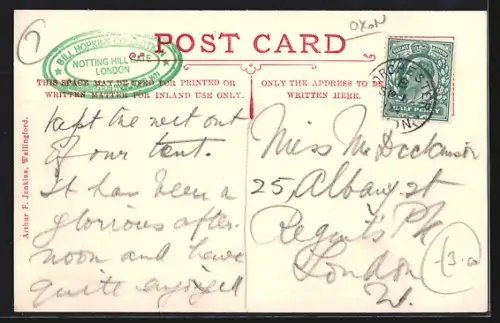 6
OXON
BILL HOPKINS COLLECTION
NOTTING HILL GATE
LONDON
POST CARD
THIS SPACE MAY BE USED FOR PRINTED OR
WRITTEN MATTER FOR INLAND USE ONLY.
ONLY THE ADDRESS TO BE
WRITTEN HERE.
HALF PENNY
Arthur F. Jenkins, Wallingford.
kept the wet out
of our tent.
It has been a
glorious after-
noon and have
quite enjoyed
Miss
25, Albany st
Regent's Pk
London
W.